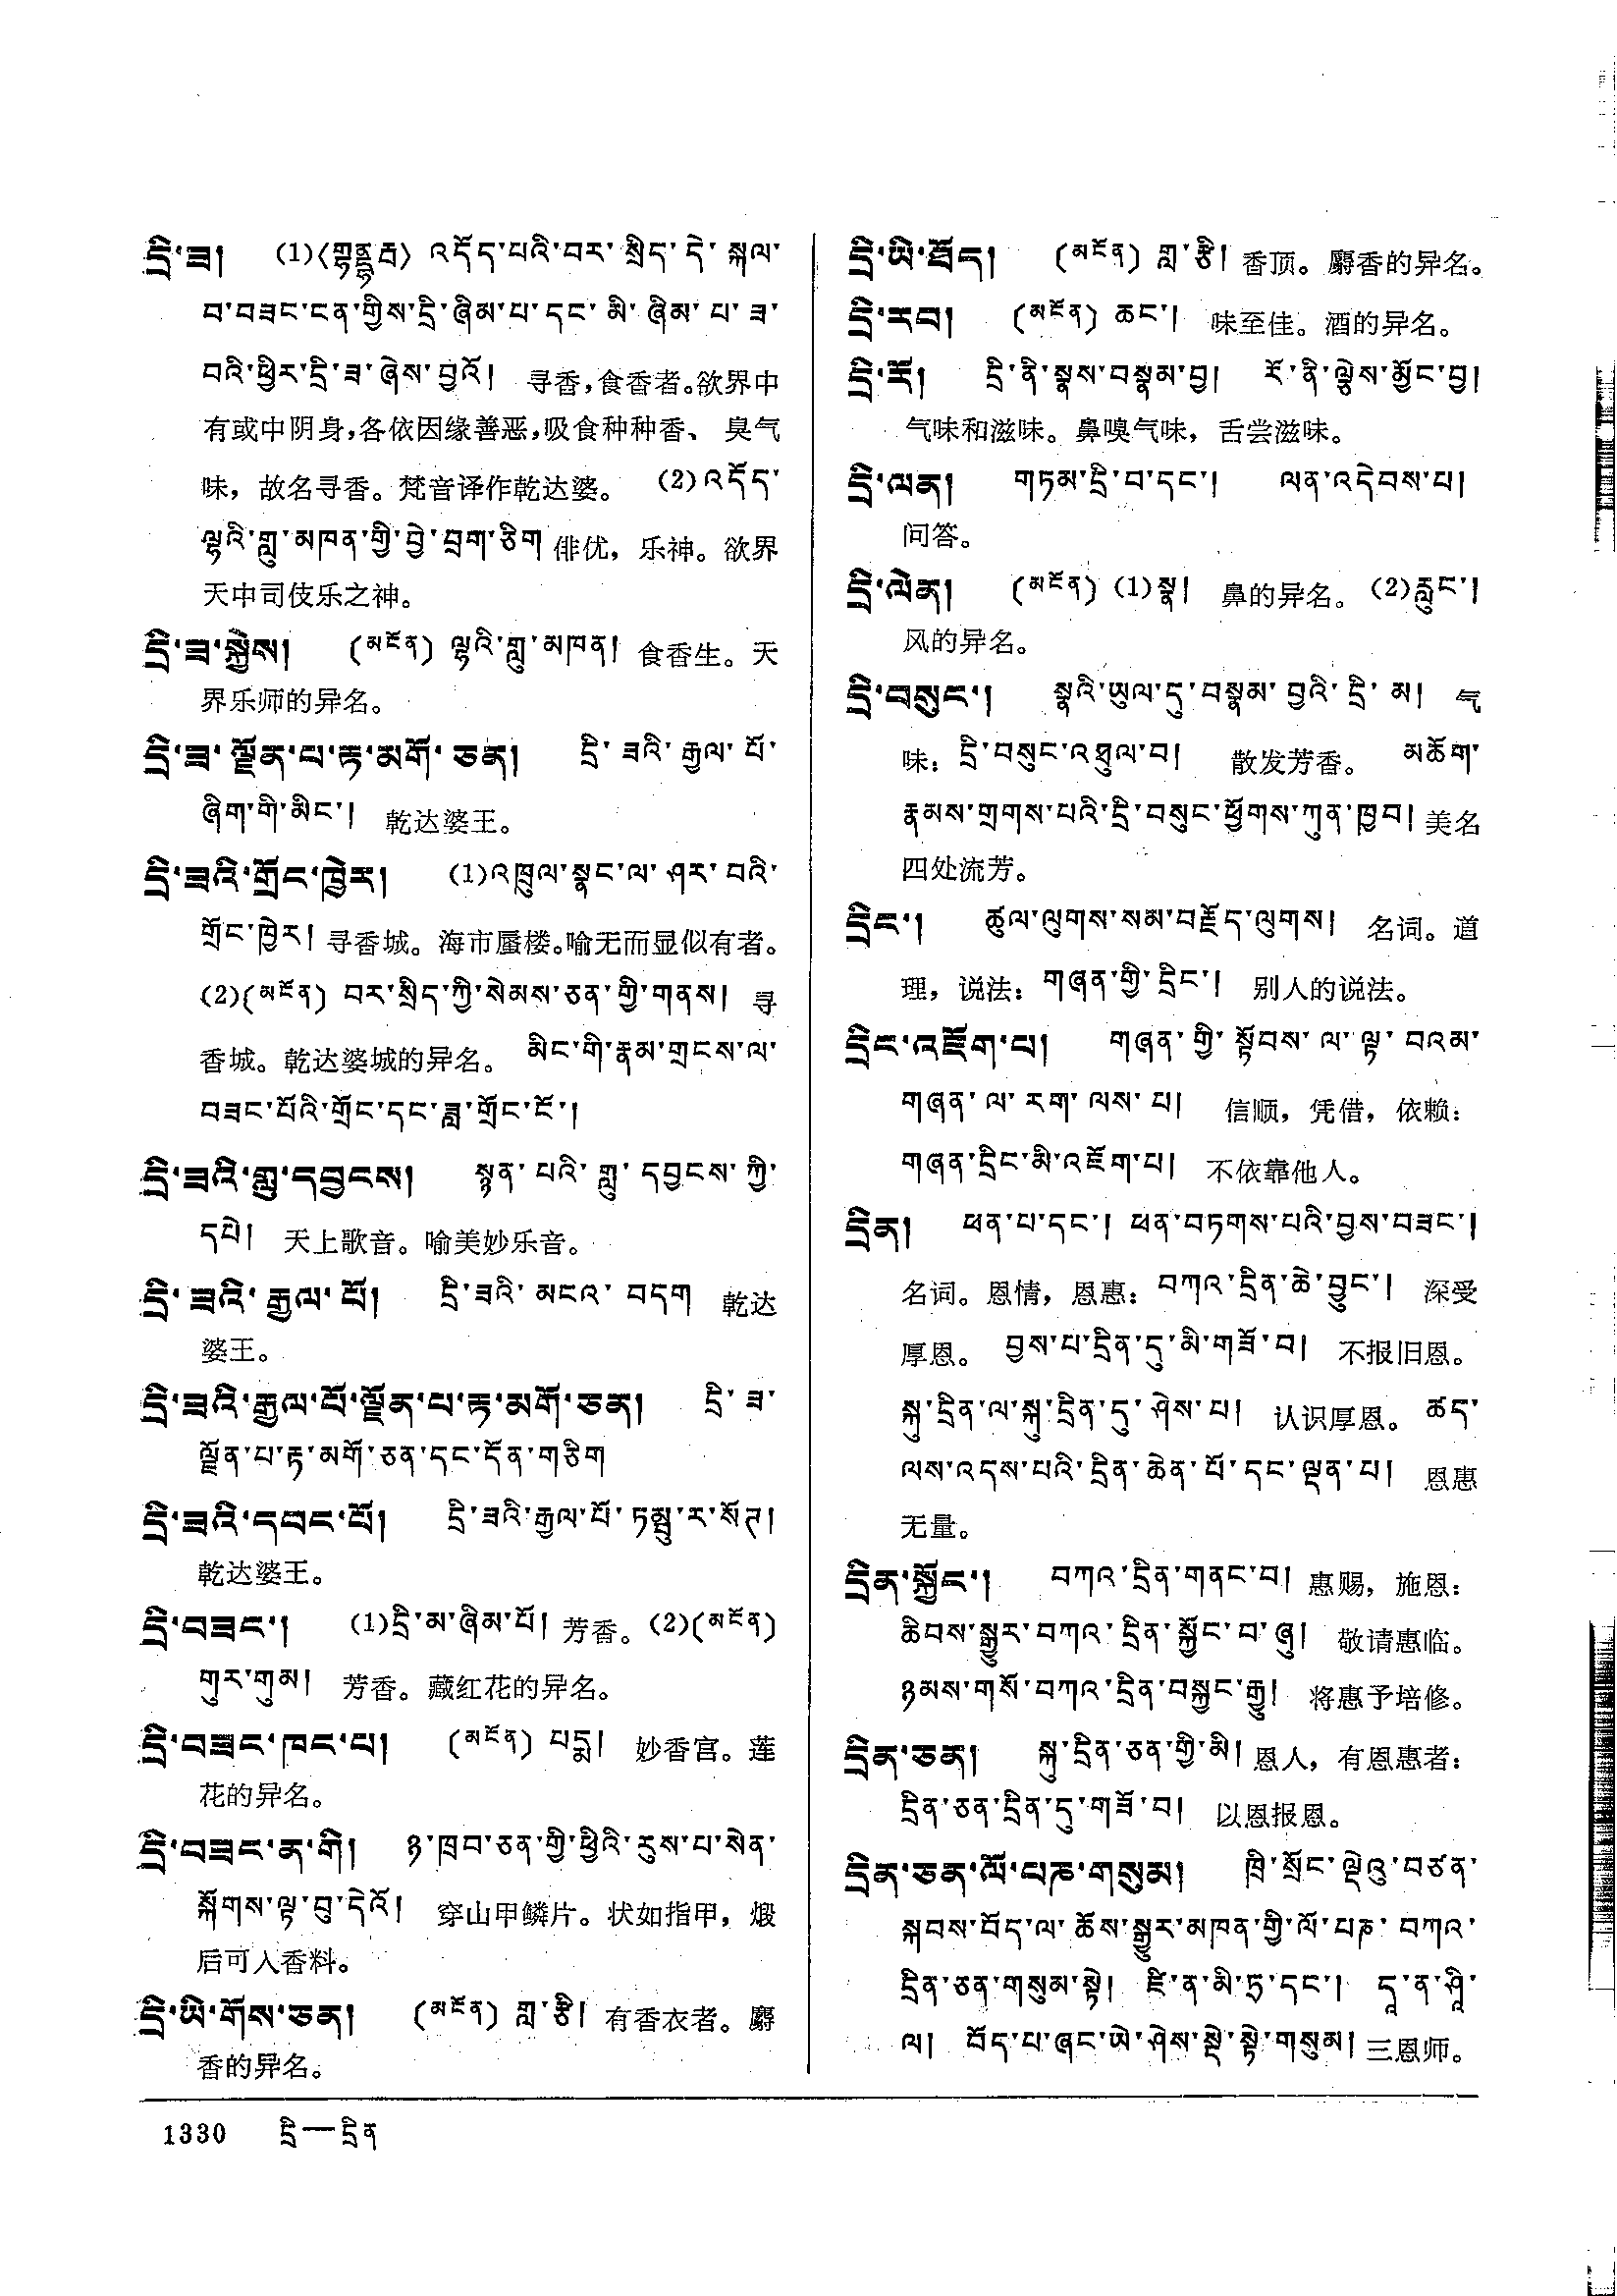 དྲི་ཟ། (1)〈གནྡྷརྦ〉 འདོད་པའི་བར་སྲིད་དེ་སྐལ་
བ་བཟང་ངན་གྱིས་དྲི་ཞིམ་པ་དང་མི་ཞིམ་པ་ཟ་
བའི་ཕྱིར་དྲི་ཟ་ཞེས་བྱའོ། 寻香,食香者。欲界中
有或中阴身,各依因缘善恶,吸食种种香、臭气
味，故名寻香。梵音译作乾达婆。 (2)འདོད་
ལྷའི་གླུ་མཁན་གྱི་བྱེ་བྲག་ཅིག 俳优，乐神。欲界
天中司伎乐之神。
དྲི་ཟ་སྐྱེས། (མངོན) ལྷའི་གླུ་མཁན། 食香生。天
界乐师的异名。
དྲི་ཟ་ལྗོན་པ་རྟ་མགོ་ཅན། དྲི་ཟའི་རྒྱལ་པོ་
ཞིག་གི་མིང་། 乾达婆王。
དྲི་ཟའི་གྲོང་ཁྱེར། (1)འཁྲུལ་སྣང་ལ་ཤར་བའི་
གྲོང་ཁྱེར། 寻香城。海市蜃楼。喻无而显似有者。
(2)(མངོན) བར་སྲིད་ཀྱི་སེམས་ཅན་གྱི་གནས། 寻
香城。乾达婆城的异名。 མིང་གི་རྣམ་གྲངས་ལ་
བཟང་པོའི་གྲོང་དང་ཟླ་གྲོང་ངོ་།
དྲི་ཟའི་གླུ་དབྱངས། སྙན་པའི་གླུ་དབྱངས་ཀྱི་
དཔེ། 天上歌音。喻美妙乐音。
དྲི་ཟའི་རྒྱལ་པོ། དྲི་ཟའི་མངའ་བདག 乾达
婆王。
དྲི་ཟའི་རྒྱལ་པོ་ལྗོན་པ་རྟ་མགོ་ཅན། དྲི་ཟ་
ལྗོན་པ་རྟ་མགོ་ཅན་དང་དོན་གཅིག
དྲི་ཟའི་དབང་པོ། དྲི་ཟའི་རྒྱལ་པོ་
乾达婆王。
དྲི་བཟང་། (1)དྲི་མ་ཞིམ་པོ། 芳香。(2)(མངོན)
གུར་གུམ། 芳香。藏红花的异名。
དྲི་བཟང་ཁང་པ། (མངོན) པདྨ། 妙香宫。莲
花的异名。
དྲི་བཟང་ན་གི། ཉ་ཁྲབ་ཅན་གྱི་ཕྱིའི་རུས་པ་སེན་
སྐོགས་ལྟ་བུ་དེའོ། 穿山甲鳞片。状如指甲，煅
后可入香料。
དྲི་ཡི་གོས་ཅན། (མངོན) གླ་རྩི། 有香衣者。麝
香的异名。
དྲི་ཡི་ཐོད། (མངོན) གླ་རྩི། 香顶。麝香的异名。
དྲི་རབ། (མངོན) ཆང་། 味至佳。酒的异名。
དྲི་རོ། དྲི་ནི་སྣས་བསྣམ་བྱ། རོ་ནི་ལྕེས་མྱོང་བྱ།
气味和滋味。鼻嗅气味，舌尝滋味。
དྲི་ལན། གཏམ་དྲི་བ་དང་། ལན་འདེབས་པ།
问答。
དྲི་ལེན། (མངོན) (1)སྣ། 鼻的异名。 (2)རླུང་།
风的异名。
དྲི་བསུང་། སྣའི་ཡུལ་དུ་བསྣམ་བྱའི་དྲི་མ། 气
味： དྲི་བསུང་འཐུལ་བ། 散发芳香。 མཆོག་
རྣམས་གྲགས་པའི་དྲི་བསུང་ཕྱོགས་ཀུན་ཁྱབ། 美名
四处流芳。
དྲིང་། ཚུལ་ལུགས་སམ་བརྗོད་ལུགས། 名词。道
理，说法： གཞན་གྱི་དྲིང་། 别人的说法。
དྲིང་འཇོག་པ། གཞན་གྱི་སྟོབས་ལ་ལྟ་བའམ་
གཞན་ལ་རག་ལས་པ། 信顺，凭借，依赖：
གཞན་དྲིང་མི་འཇོག་པ། 不依靠他人。
དྲིན། ཕན་པ་དང་། ཕན་བཏགས་པའི་བྱས་བཟང་།
名词。恩情，恩惠： བཀའ་དྲིན་ཆེ་བྱུང་། 深受
厚恩。 བྱས་པ་དྲིན་དུ་མི་གཟོ་བ། 不报旧恩。
སྐུ་དྲིན་ལ་སྐུ་དྲིན་དུ་ཤེས་པ། 认识厚恩。 ཚད་
ལས་འདས་པའི་དྲིན་ཆེན་པོ་དང་ལྡན་པ། 恩惠
无量。
དྲིན་སྐྱོང་། བཀའ་དྲིན་གནང་བ། 惠赐，施恩：
ཆིབས་སྒྱུར་བཀའ་དྲིན་སྐྱོང་བ་ཞུ། 敬请惠临。
ཉམས་གསོ་བཀའ་དྲིན་བསྐྱང་རྒྱུ། 将惠予培修。
དྲིན་ཅན། སྐུ་དྲིན་ཅན་གྱི་མི། 恩人，有恩惠者：
དྲིན་ཅན་དྲིན་དུ་གཟོ་བ། 以恩报恩。
དྲིན་ཅན་ལོ་པཎ་གསུམ། ཁྲི་སྲོང་ལྡེའུ་བཙན་
སྐབས་བོད་ལ་ཆོས་སྒྱུར་མཁན་གྱི་ལོ་པཎ་བཀའ་
དྲིན་ཅན་གསུམ་སྟེ། ཛི་ན་མི་ཏྲ་དང་། དཱ་ན་ཤཱི་
ལ། བོད་པ་ཞང་ཡེ་ཤེས་སྡེ་སྟེ་གསུམ། 三恩师。
1330 དྲི—དྲིན